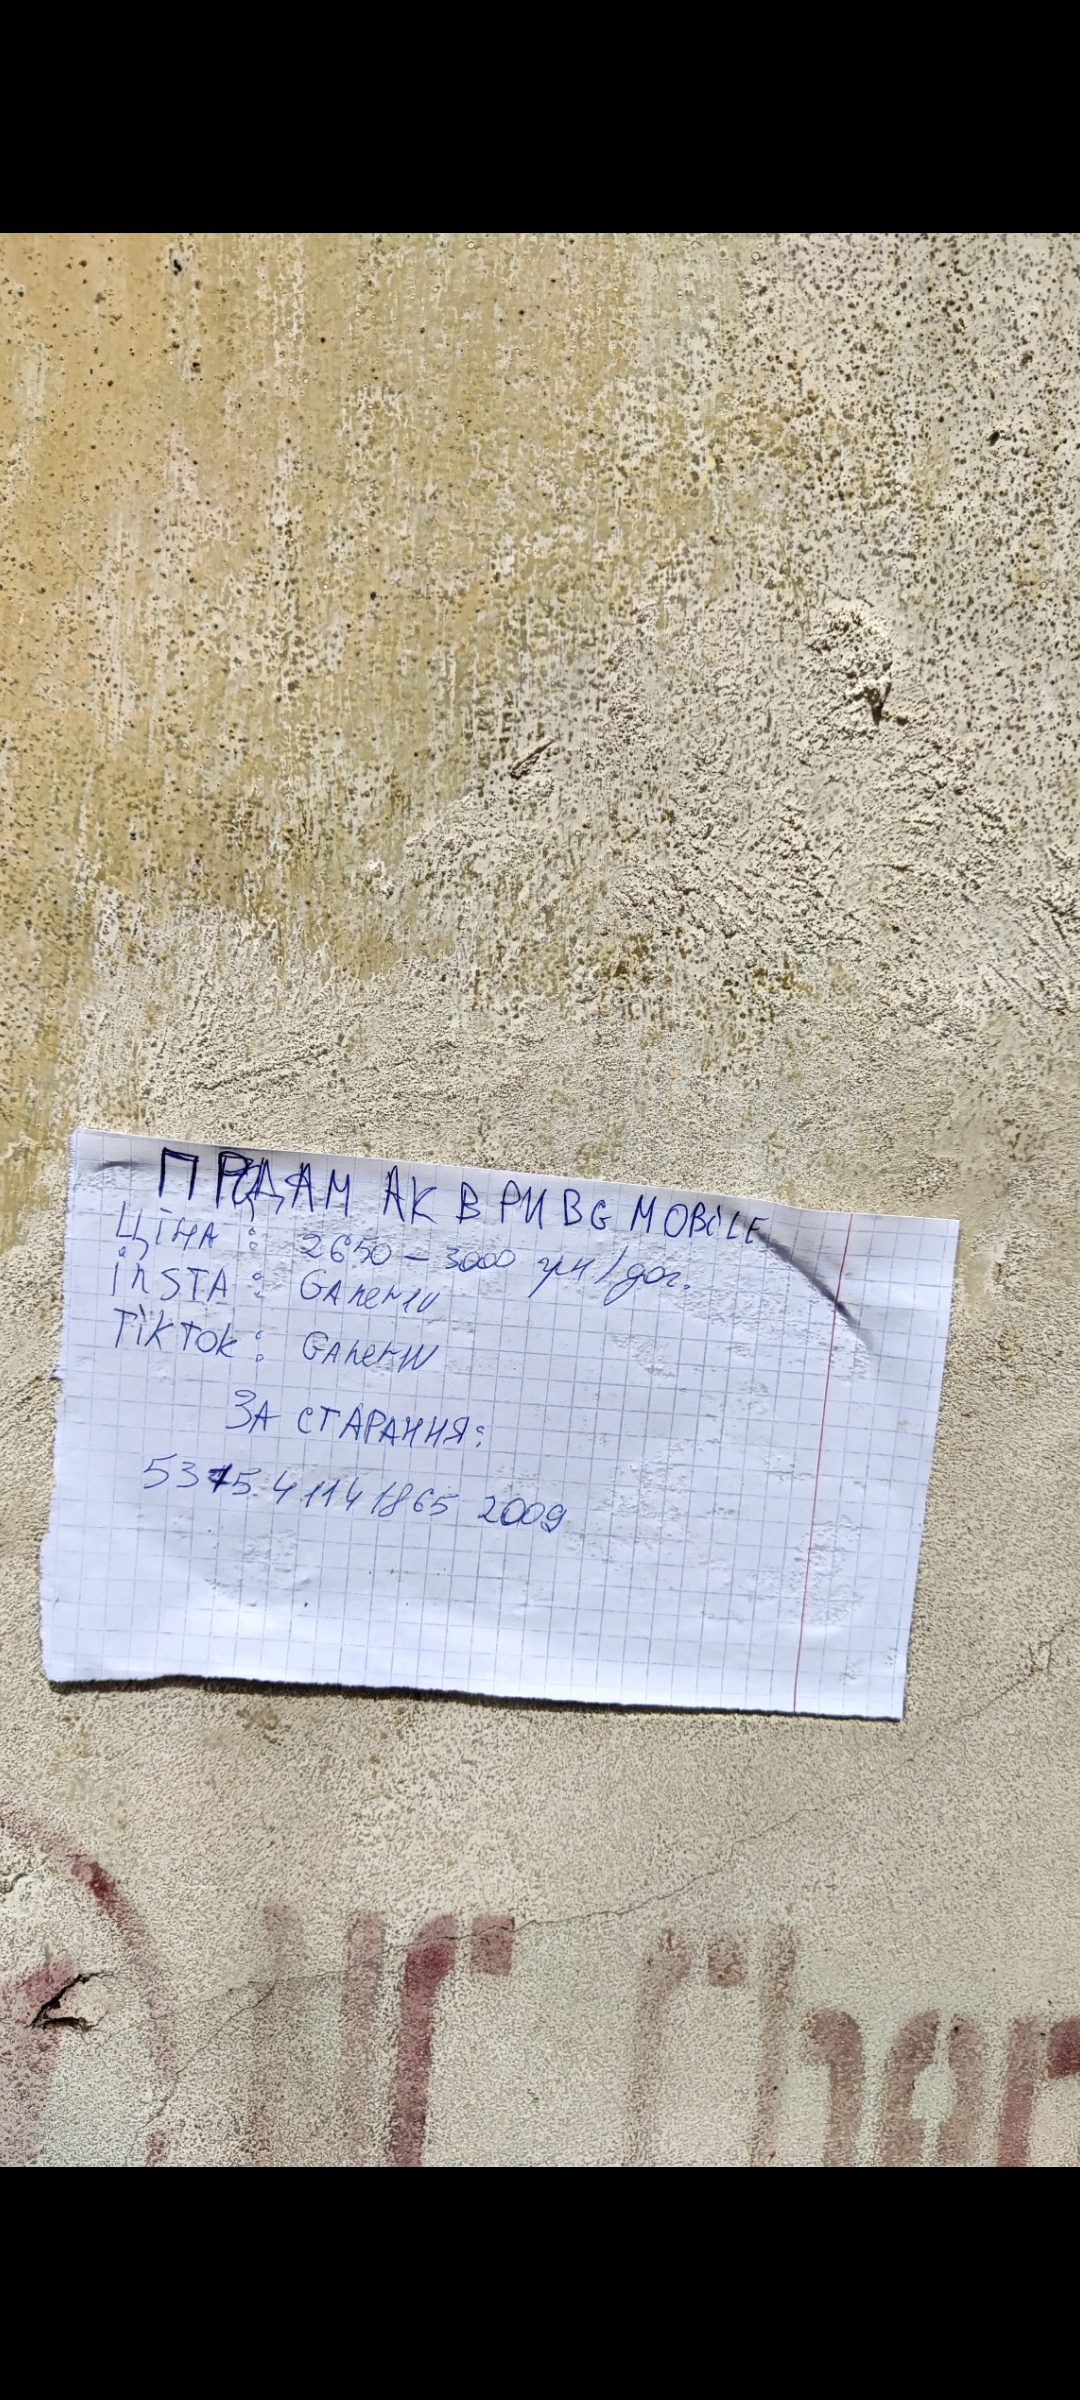 ПРОДАМ АК В PUBG MOBiLE
Ціна : 2650 – 3000 грн/дог.
iнSTA : GAner1V
TikTok : GAnerIV
ЗА СТАРАННЯ:
5375 4114 1865 2009